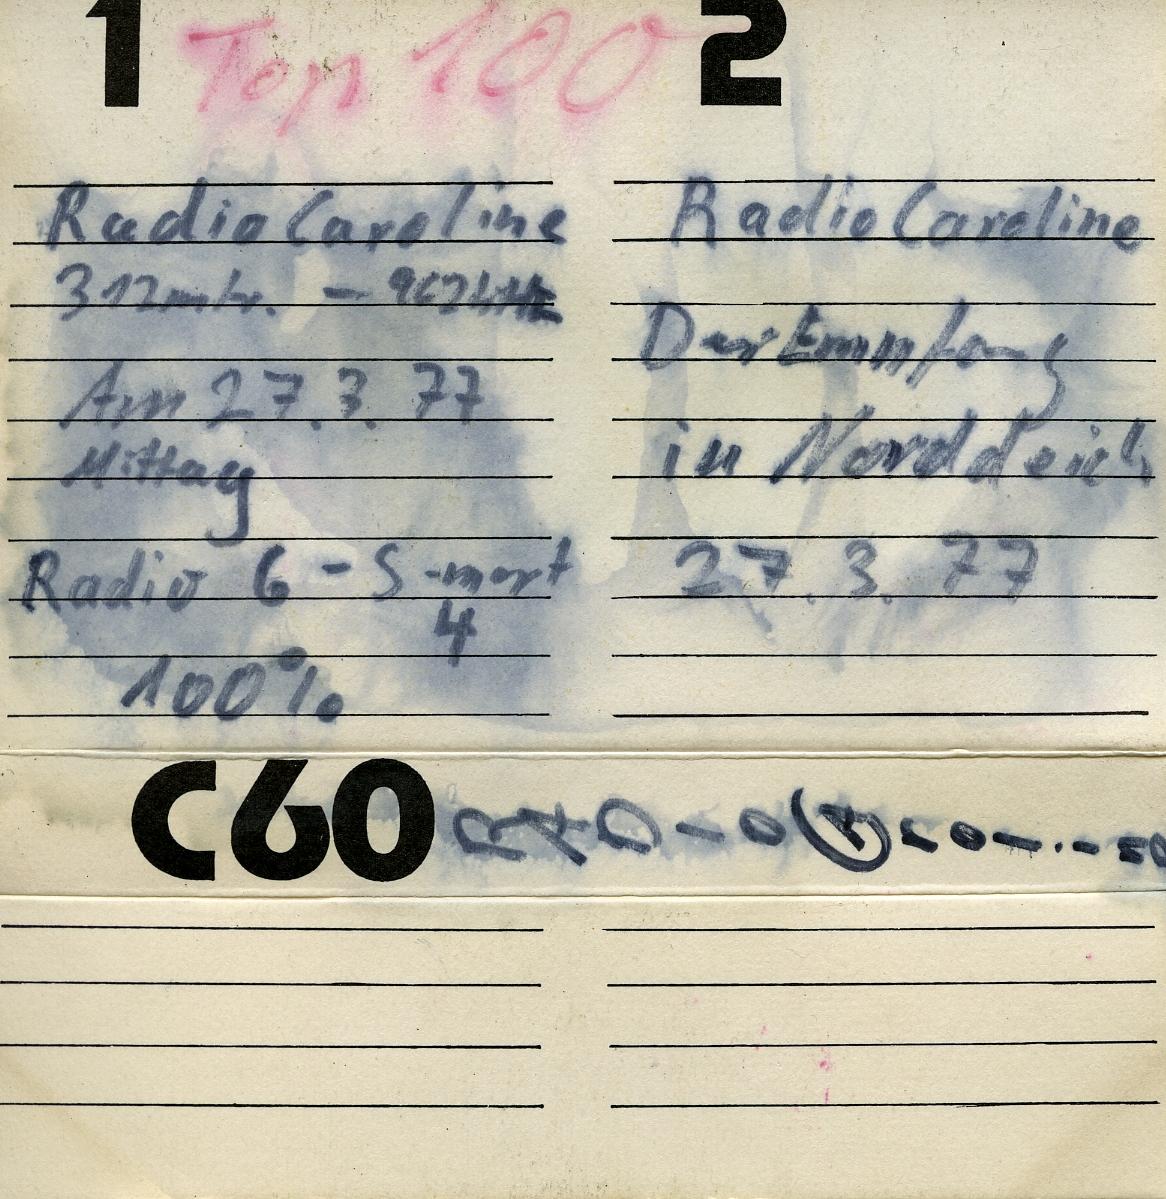 1
Top 100
Radio Caroline
312mtr. – 962kHz
Am 27.3.77
Mittag
Radio 6 - S-mert
4
100%
2
Radio Caroline
Der Emmfang
in Norddeich
27.3.77
C60